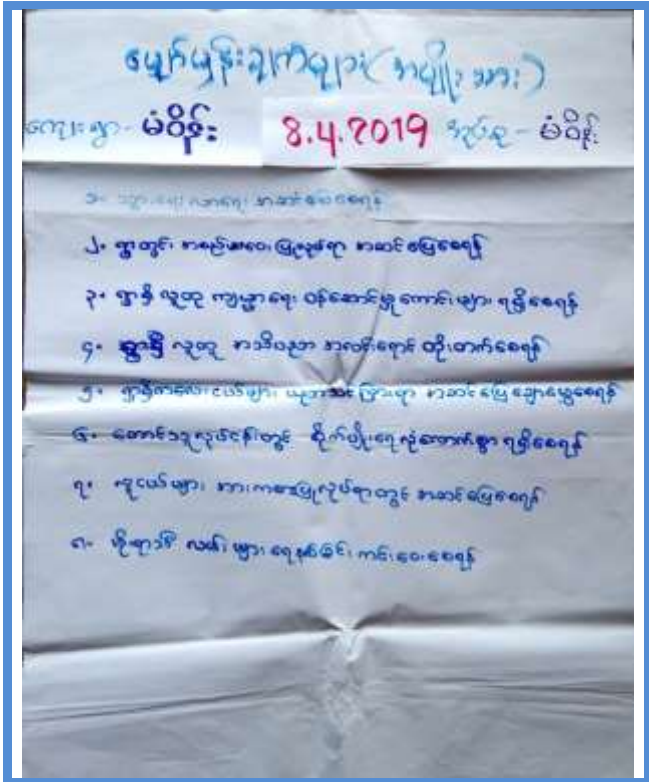 မျှော်မှန်းချက်များ (အမျိုးသား)
ကျေးရွာ - မံဝိန်း 8.4.2019 အုပ်စု - မံဝိန်း
၁။ သွားရေးလာရေး အဆင်ပြေစေရန်
၂။ ရွာတွင်း အစည်းအဝေး ပြုလုပ်ရာ အဆင်ပြေစေရန်
၃။ ရွာရှိ လူထု ကျန်းမာရေး ဝန်ဆောင်မှုကောင်းများ ရရှိစေရန်
၄။ ရွာရှိ လူထု အသိပညာ အလင်းရောင် တိုးတက်စေရန်
၅။ ရွာရှိကလေးငယ်များ ပညာသင်ကြားရာ အဆင်ပြေချောမွေ့စေရန်
၆။ တောင်သူလုပ်ငန်းတွင် စိုက်ပျိုးရေလုံလောက်စွာ ရရှိစေရန်
၇။ လူငယ်များ အားကစားပြုလုပ်ရာတွင် အဆင်ပြေစေရန်
၈။ လယ်များ ရေနစ်မြုပ်ခြင်း ကင်းဝေးစေရန်